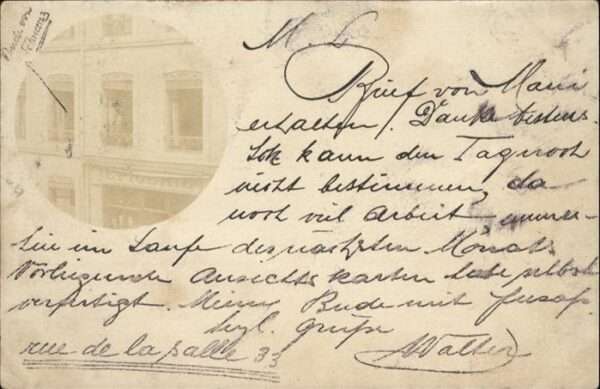 Bude von
M. L.
Brief von Mami
erhalten. Danke bestens.
Ich kann den Tag noch
nicht bestimmen, da
noch viel Arbeit
im Laufe des nächsten Monats
Vorliegende Ansichtskarten habe selbst
verfertigt. Meine Bude mit
herzl. Grüße
AWalter
rue de la Salle 33